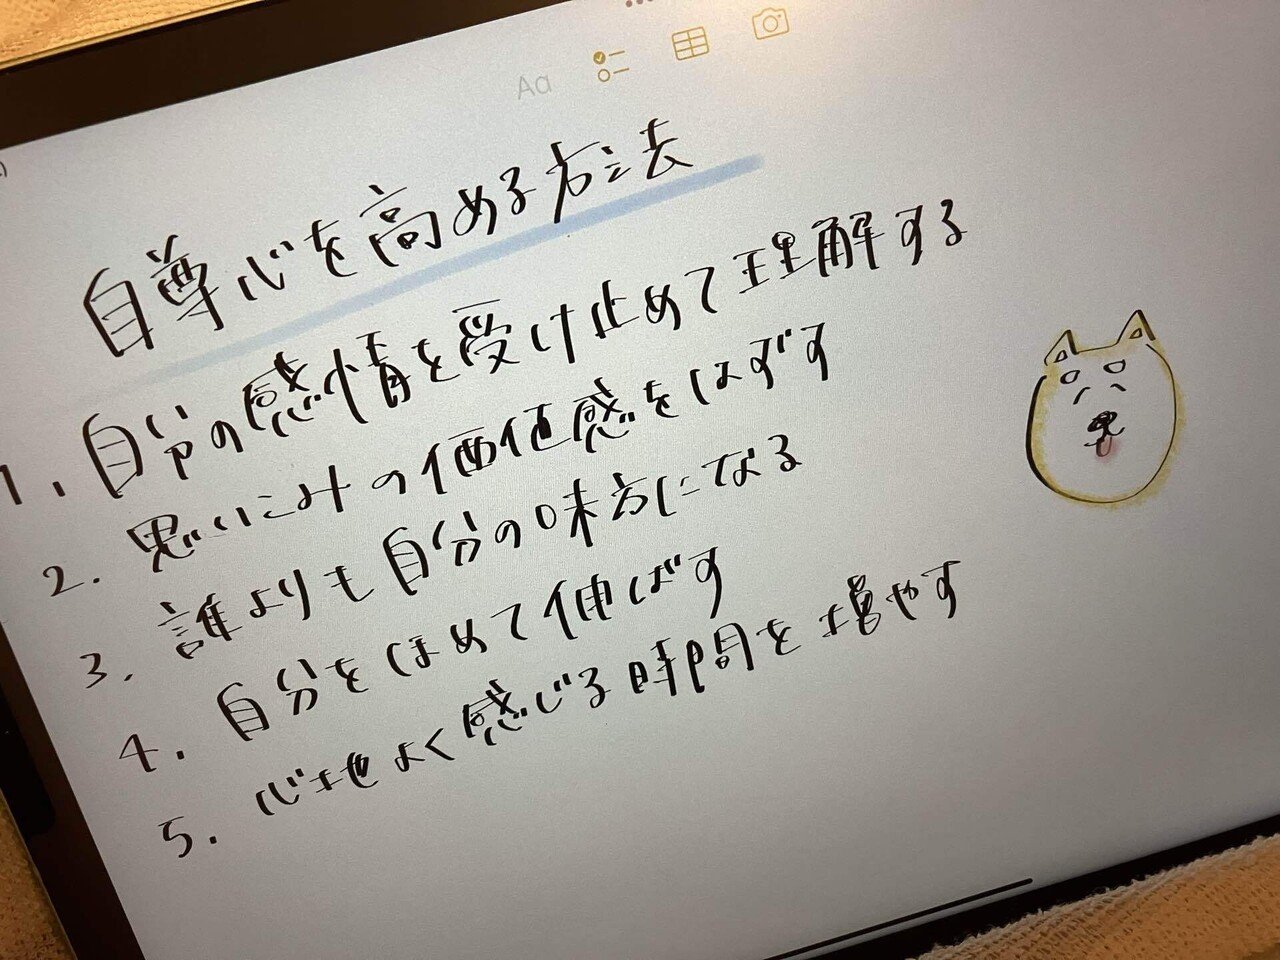 Aa
自尊心を高める方法
1. 自分の感情を受け止めて理解する
2. 思いこみの価値感をはずす
3. 誰よりも自分の味方になる
4. 自分をほめて伸ばす
5. 心地よく感じる時間を増やす